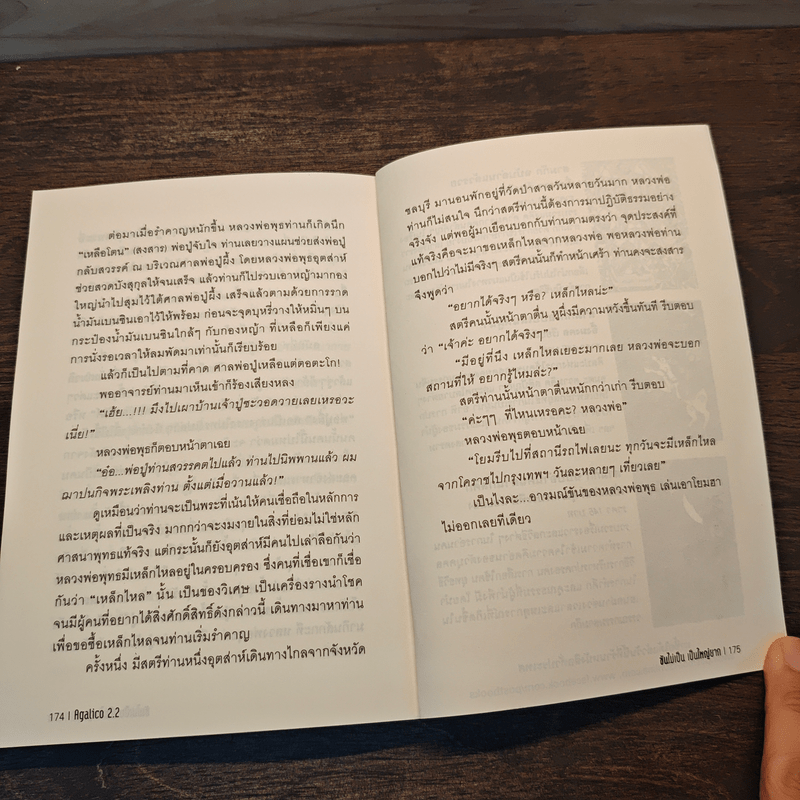 ต่อมาเมื่อรำคาญหนักขึ้น หลวงพ่อพุธท่านก็เกิดนึก
"เหลือโตน" (สงสาร) พ่อปู่จับใจ ท่านเลยวางแผนช่วยส่งพ่อปู่
กลับสวรรค์ ณ บริเวณศาลพ่อปู่ผึ้ง โดยหลวงพ่อพุธอุตส่าห์
ช่วยสวดบังสุกุลให้จนเสร็จ แล้วท่านก็ไปรวบเอาหญ้ามากอง
ใหญ่นำไปสุมไว้ใต้ศาลพ่อปู่ผึ้ง เสร็จแล้วตามด้วยการราด
น้ำมันเบนซินเอาไว้ให้พร้อม ก่อนจะจุดบุหรี่วางให้หมิ่นๆ บน
กระป๋องน้ำมันเบนซินใกล้ๆ กับกองหญ้า ที่เหลือก็เพียงแค่
การนั่งรอเวลาให้ลมพัดมาเท่านั้นก็เรียบร้อย
แล้วก็เป็นไปตามที่คาด ศาลพ่อปู่เหลือแต่ตอตะโก!
พออาจารย์ท่านมาเห็นเข้าก็ร้องเสียงหลง
"เฮ้ย...!!! มึงไปเผาบ้านเจ้าปู่ซะวอดวายเลยเหรอวะ
เนี่ย!"
หลวงพ่อพุธก็ตอบหน้าตาเฉย
"อ๋อ...พ่อปู่ท่านสวรรคตไปแล้ว ท่านไปนิพพานแล้ว ผม
ฌาปนกิจพระเพลิงท่าน ตั้งแต่เมื่อวานแล้ว!"
ดูเหมือนว่าท่านจะเป็นพระที่เน้นให้คนเชื่อถือในหลักการ
และเหตุผลที่เป็นจริง มากกว่าจะงมงายในสิ่งที่ย่อมไม่ใช่หลัก
ศาสนาพุทธแท้จริง แต่กระนั้นก็ยังอุตส่าห์มีคนไปเล่าลือกันว่า
หลวงพ่อพุธมีเหล็กไหลอยู่ในครอบครอง ซึ่งคนที่เชื่อเขาก็เชื่อ
กันว่า "เหล็กไหล" นั้น เป็นของวิเศษ เป็นเครื่องรางนำโชค
จนมีผู้คนที่อยากได้สิ่งศักดิ์สิทธิ์ดังกล่าวนี้ เดินทางมาหาท่าน
เพื่อขอซื้อเหล็กไหลจนท่านเริ่มรำคาญ
ครั้งหนึ่ง มีสตรีท่านหนึ่งอุตส่าห์เดินทางไกลจากจังหวัด
174 | Agalico 2.2
ชลบุรี มานอนพักอยู่ที่วัดป่าสาลวันหลายวันมาก หลวงพ่อ
ท่านก็ไม่สนใจ นึกว่าสตรีท่านนี้ต้องการมาปฏิบัติธรรมอย่าง
จริงจัง แต่พอผู้มาเยือนบอกกับท่านตามตรงว่า จุดประสงค์ที่
แท้จริงคือจะมาขอเหล็กไหลจากหลวงพ่อ พอหลวงพ่อท่าน
บอกไปว่าไม่มีจริงๆ สตรีคนนั้นก็ทำหน้าเศร้า ท่านคงจะสงสาร
จึงพูดว่า
"อยากได้จริงๆ หรือ? เหล็กไหลน่ะ"
สตรีคนนั้นหน้าตาตื่น หูผึ่งมีความหวังขึ้นทันที รีบตอบ
ว่า "เจ้าค่ะ อยากได้จริงๆ"
"มีอยู่ที่นึง เหล็กไหลเยอะมากเลย หลวงพ่อจะบอก
สถานที่ให้ อยากรู้ไหมล่ะ?"
สตรีท่านนั้นหน้าตาตื่นหนักกว่าเก่า รีบตอบ
"ค่ะๆๆ ที่ไหนเหรอคะ? หลวงพ่อ"
หลวงพ่อพุธตอบหน้าเฉย
"โยมรีบไปที่สถานีรถไฟเลยนะ ทุกวันจะมีเหล็กไหล
จากโคราชไปกรุงเทพฯ วันละหลายๆ เที่ยวเลย"
เป็นไงละ...อารมณ์ขันของหลวงพ่อพุธ เล่นเอาโยมฮา
ไม่ออกเลยทีเดียว
ขันไม่เป็น เป็นใหญ่ยาก | 175